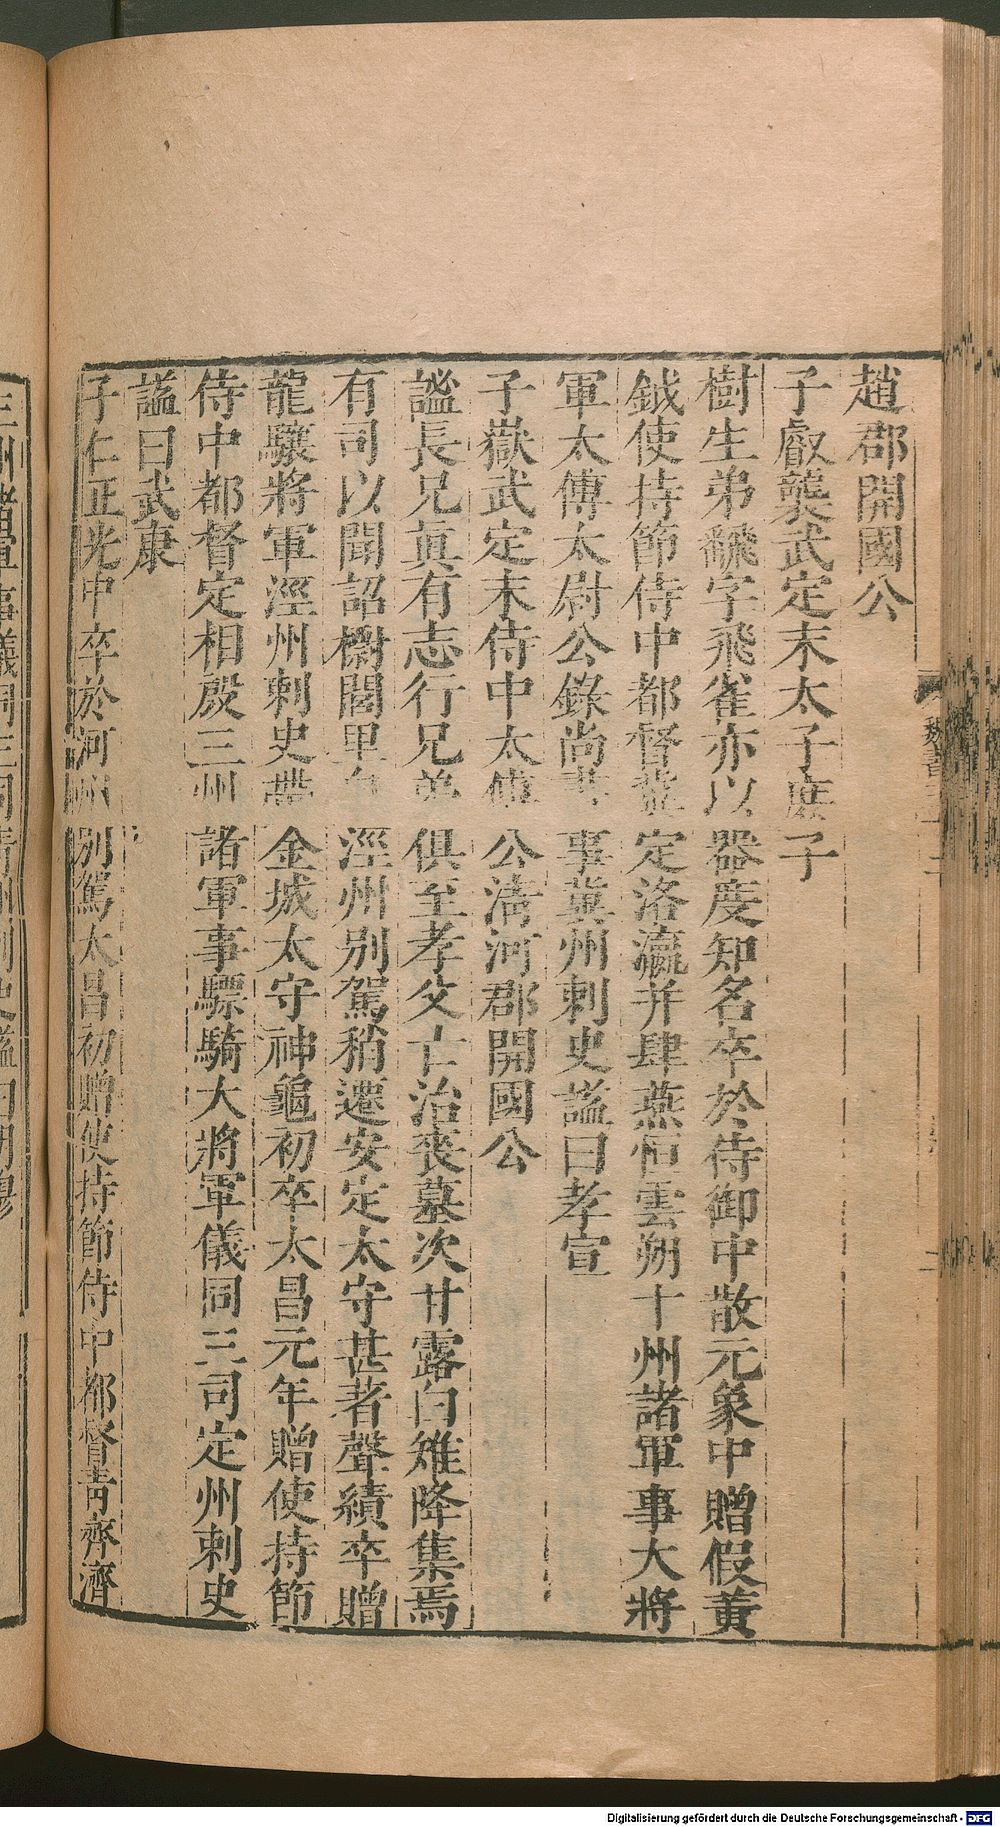 趙郡開國公
子叡襲武定末太子庶子
樹生弟飜字飛雀亦以器度知名卒於侍御中散元象中贈假黃
鉞使持節侍中都督冀定洛瀛并肆燕恒雲朔十州諸軍事大將
軍太傅太尉公錄尚書事冀州刺史諡曰孝宣
子嶽武定末侍中太傅公清河郡開國公
謐長兄眞有志行兄弟俱至孝父亡治喪墓次甘露白雉降集焉
有司以聞詔樹閭里自涇州别駕稍遷安定太守甚著聲績卒贈
龍驤將軍涇州刺史 金城太守神龜初卒太昌元年贈使持節
侍中都督定相殷三州諸軍事驃騎大將軍儀同三司定州刺史
諡曰武康
子仁正光中卒於河州別駕太昌初贈使持節侍中都督靑齊濟
魏書三十二
Digitalisierung gefördert durch die Deutsche Forschungsgemeinschaft - DFG